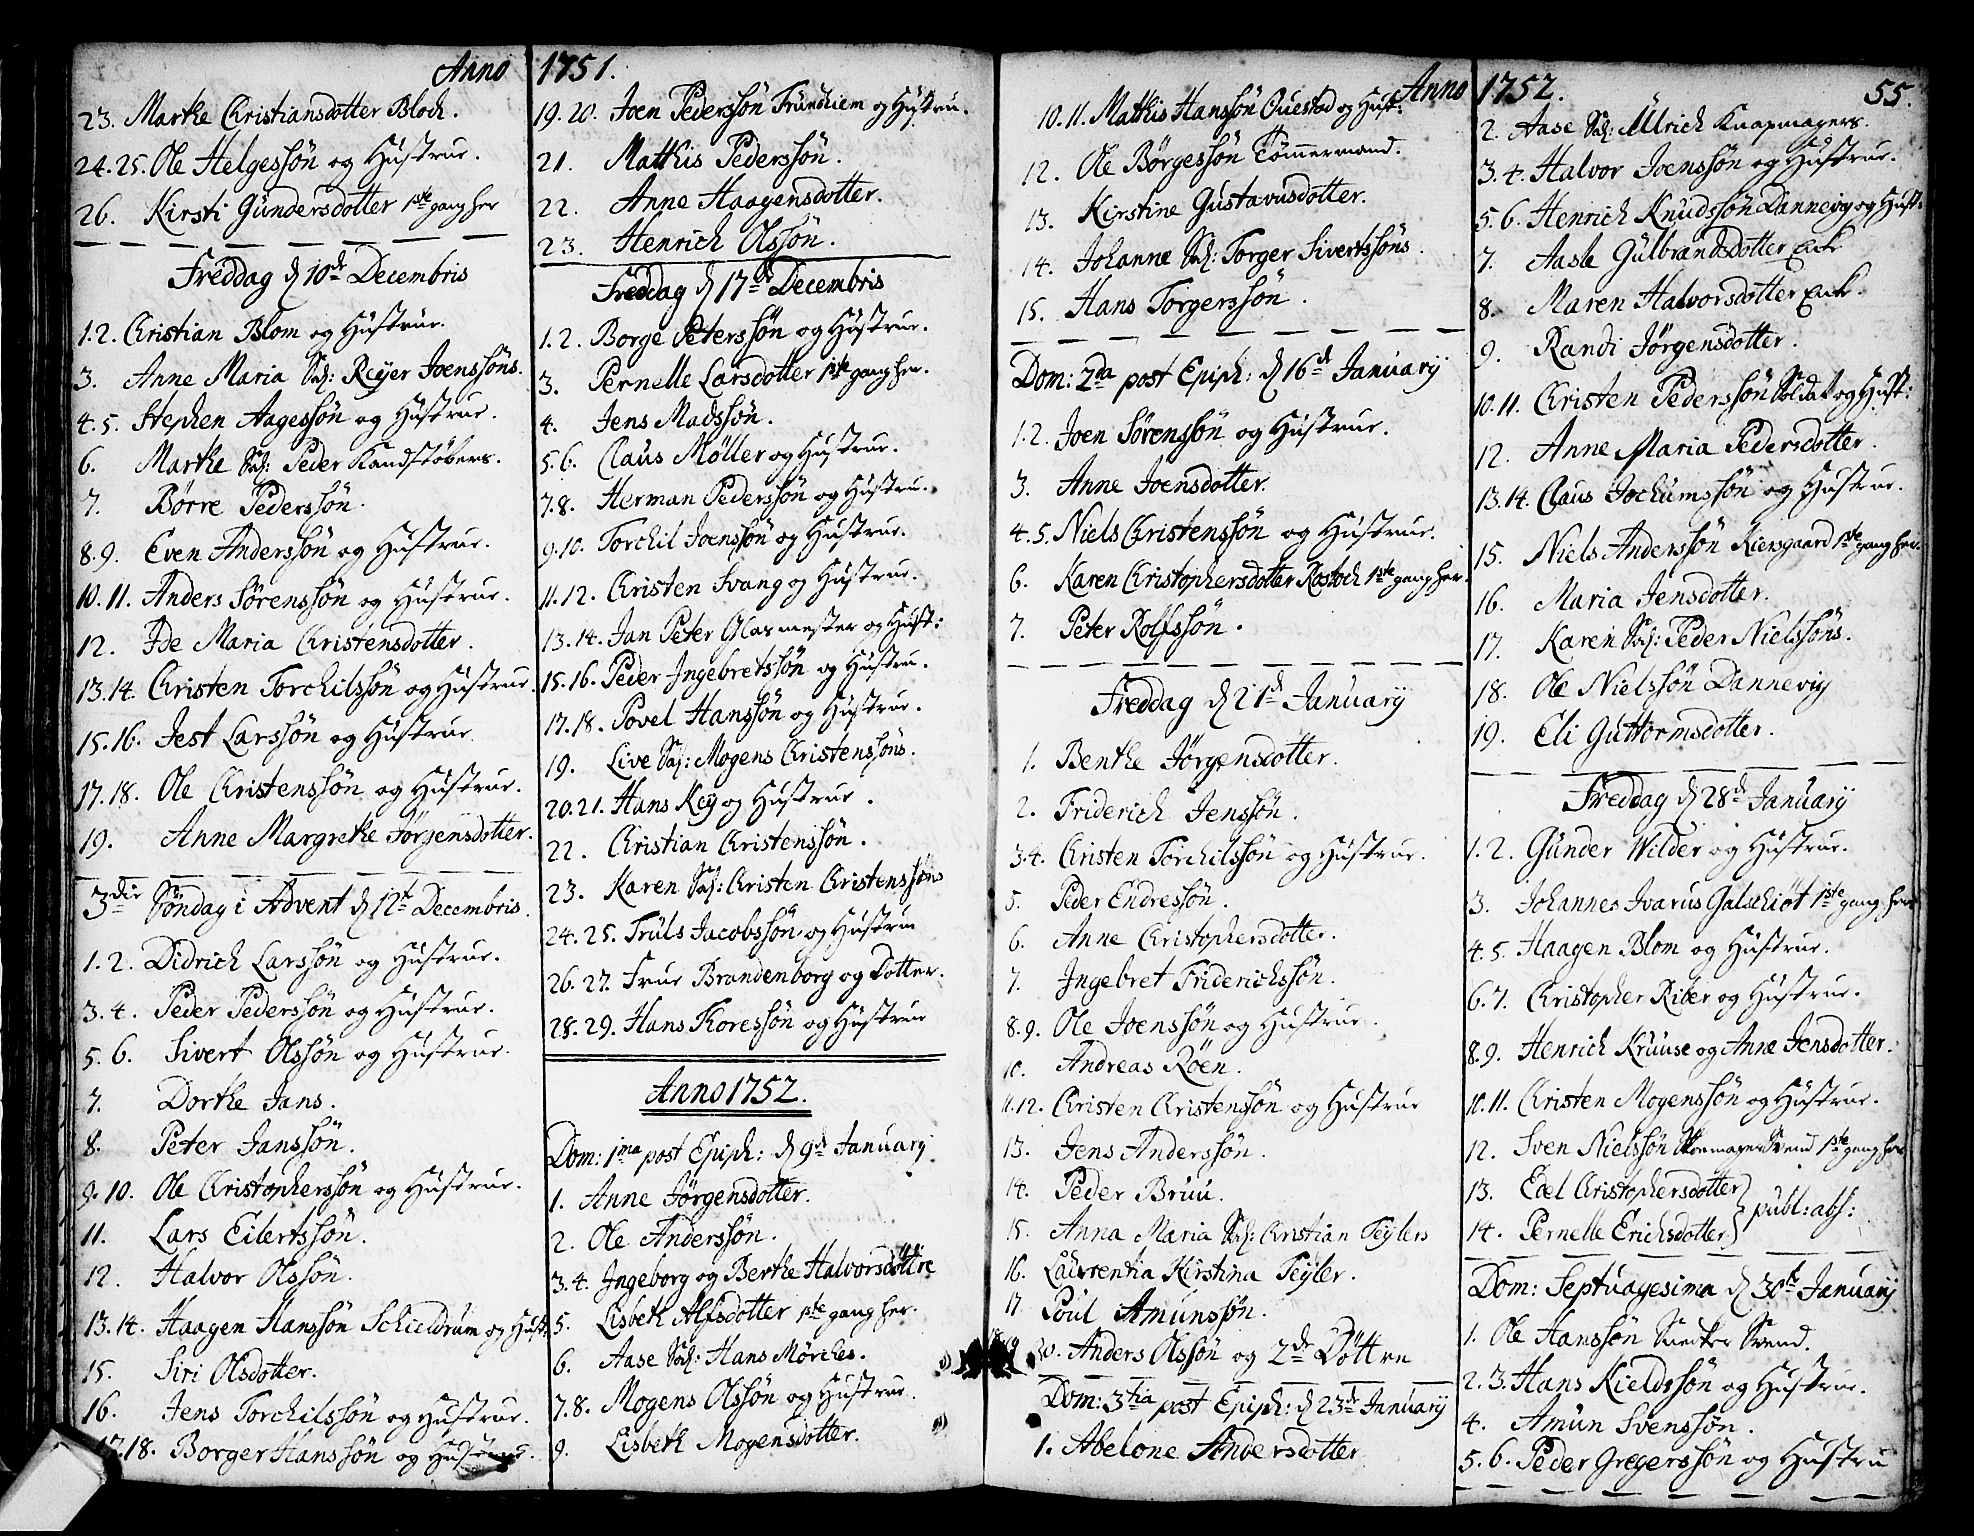 Anno 1751.
23. Marthe Christiansdotter Bloch.
24. 25. Ole Helgessön og Hustrue.
26. Kirsti Gündersdotter 1ste gang her
Freddag d 10de Decembris
1. 2. Christian Blom og Hüstrüe.
3. Anne Maria Sal: Reyer Joenssöns.
4. 5. Stephen Aagessön og Hüstrue.
6. Marthe Sal: Peder Kandstöbers.
7. Börre Pederssön.
8. 9. Even Anderssön og Hustrue.
10. 11. Anders Sörenssön og Hustrue.
12. Ide Maria Christensdotter.
13. 14. Christen Torchilssön og Hustrue.
15. 16. Jest Larssön og Hustrue
17. 18. Ole Christenssön og Hustrue.
19. Anne Margrethe Jörgensdotter.
3die Söndag i Advent d 12te Decembris.
1. 2. Didrich Larssön og Hustrue.
3. 4. Peder Pederssön og Hustrue.
5. 6. Sivert Olssön og Hustrue.
7. Dorthe Jans.
8. Peter Janssön.
9. 10. Ole Christopherssön og Hustrue.
11. Lars Eilertssön.
12. Halvor Olssön.
13. 14. Haagen Hanssön Schieldrum og Hust.
15. Siri Olsdotter.
16. Jens Torchilssön og Hustrue.
17. 18. Borger Hanssön og Hustrue.
19. 20. Joen Pederssön Trundhiem og Hustru.
21. Mathis Pederssön.
22. Anne Haagensdotter.
23. Henrich Olssön.
Freddag d 17de Decembris
1. 2. Borge Peterssön og Hüstrue.
3. Pernelle Larsdotter 1ste gang her.
4. Jens Madssön.
5. 6. Claus Möller og Hustrue.
7. 8. Herman Pederssön og Hustru.
9. 10. Torchil Joenssön og Hustrue.
11. 12. Christen Svang og Hustrue.
13. 14. Jan Peter Glarmester og Hust:
15. 16. Peder Jngebretssön og Hustru.
17. 18. Povel Hanssön og Hustrue.
19. Live Sal: Mogens Christenssöns.
20. 21. Hans Key og Hustrue.
22. Christian Christenssön.
23. Karen Sal: Christen Christenssöns
24. 25. Trüls Jacobssön og Hustrue
26. 27. Frue Brandenborg og Dotter.
28. 29. Hans Thoressön og Hüstrue
Anno 1752.
Dom: 1ma post Epiph: d 9de January
1. Anne Jörgensdotter.
2. Ole Anderssön.
3. 4. Jngeborg og Berthe Halvorsdöttre
5. Lisbeth Alfsdotter 1ste gang her.
6. Aase Sal: Hans Mörches.
7. 8. Mogens Olssön og Hustrue.
9. Lisbeth Mogensdotter.
Anno 1752. 55.
10. 11. Mathis Hanssön Questad og Hust:
12. Ole Börgessön Tömmermand.
13. Kirstine Gustavusdotter.
14. Johanne Sal: Torger Sivertssöns.
15. Hans Torgerssön.
Dom: 2da post Epiph: d 16de January
1. 2. Joen Sörenssön og Hustrue.
3. Anne Joensdotter.
4. 5. Niels Christenssön og Hustrue.
6. Karen Christophersdotter Rostoch 1ste gang her.
7. Peter Rolfssön.
Freddag d 21de January
1. Benthe Jörgensdotter.
2. Friderich Jenssön.
3. 4. Christen Torchilssön og Hustrue.
5. Peder Endressön.
6. Anne Christophersdotter.
7. Jngebret Friderichssön.
8. 9. Ole Joenssön og Hustrue.
10. Andreas Röen.
11. 12. Christen Christenssön og Hustrue
13. Jens Anderssön.
14. Peder Bruu.
15. Anna Maria Sal: Christian Feylers
16. Laurentia Kirstina Feyler.
17. Poul Amunssön.
18. 19. 20. Anders Olssön og 2de Döttre
Dom: 3tia post Epiph: d 23de January
1. Abelone Andersdotter
2. Aase Sal: Ulrich Knapmagers.
3. 4. Halvor Joenssön og Hustrue.
5. 6. Henrich Knudssön Dannevig og Hust:
7. Aasle Gulbrandsdotter Enke
8. Maren Halvorsdotter Enke.
9. Randi Jörgensdotter.
10. 11. Christen Pederssön Soldat og Hust:
12. Anne Maria Pedersdotter.
13. 14. Claus Jochumssön og Hustrue.
15. Niels Anderssön Kiersgaard 1ste gang her.
16. Maria Jensdotter.
17. Karen Sal: Peder Nielssöns.
18. Ole Nielssön Dannevig
19. Eli Guttormsdotter.
Freddag d 28de January
1. 2. Günder Wilder og Hustrue.
3. Johannes Ivarus Galschiöt 1ste gang her
4. 5. Haagen Blom og Hustrue.
6. 7. Christopher Riber og Hustrue.
8. 9. Henrich Kruuse og Anne Jensdotter.
10. 11. Christen Mogenssön og Hüstrue.
12. Sven Nielssön Skomager Svend 1ste gang her
13. Edel Christophersdotter
14. Pernelle Erichsdotter } publ: abs:
Dom: Septuagesima d 30te January
1. Ole Hanssön Snedker Svend.
2. 3. Hans Kieldssön og Hustrue.
4. Amün Svenssön.
5. 6. Peder Gregerssön og Hustru